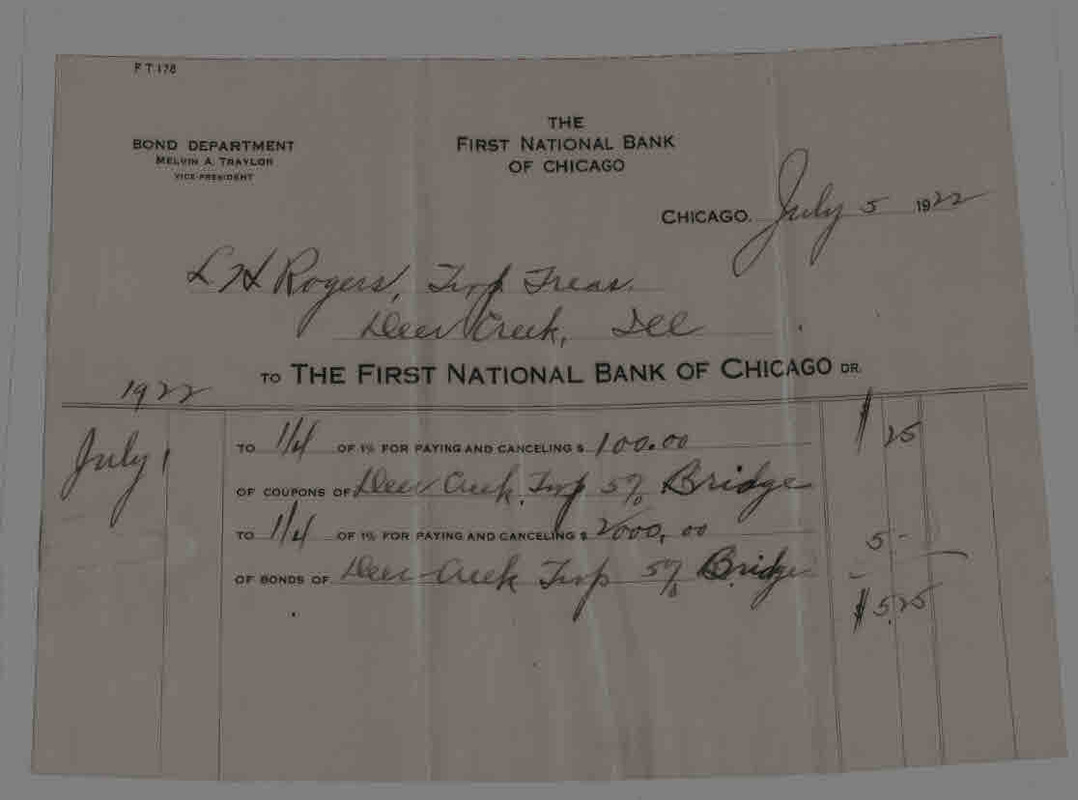 FT 178
THE
BOND DEPARTMENT
FIRST NATIONAL BANK
MELVIN A. TRAYLOR
OF CHICAGO
VICE-PRESIDENT
CHICAGO. July 5 1922
L H Rogers, Twp Treas.
Deer Creek, Ill
TO THE FIRST NATIONAL BANK OF CHICAGO DR.
1922
July 1 TO 1/4 OF 1% FOR PAYING AND CANCELING $ 100.00 $ 25
OF COUPONS OF Deer Creek Twp 5% Bridge
TO 1/4 OF 1% FOR PAYING AND CANCELING $ 2000.00 5 -
OF BONDS OF Deer Creek Twp 5% Bridge
$ 5.25